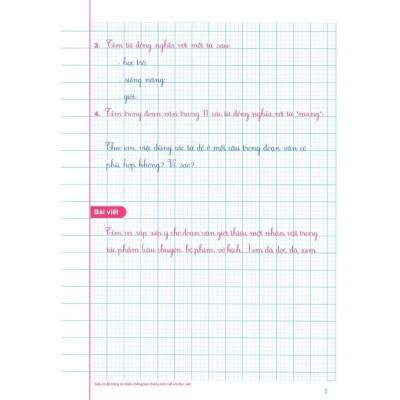 3. Tìm từ đồng nghĩa với mỗi từ sau:
- học trò:
- siêng năng:
- giỏi:
4. Tìm trong đoạn văn trang 11 các từ đồng nghĩa với từ "mang":
Theo em, việc dùng các từ đó ở mỗi câu trong đoạn văn có
phù hợp không? Vì sao?
Bài viết
Tìm và sắp xếp ý cho đoạn văn giới thiệu một nhân vật trong
tác phẩm (câu chuyện, bộ phim, vở kịch...) em đã đọc, đã xem.
Giấy có độ trắng tự nhiên chống lóa, chống mỏi mắt khi đọc, viết
5